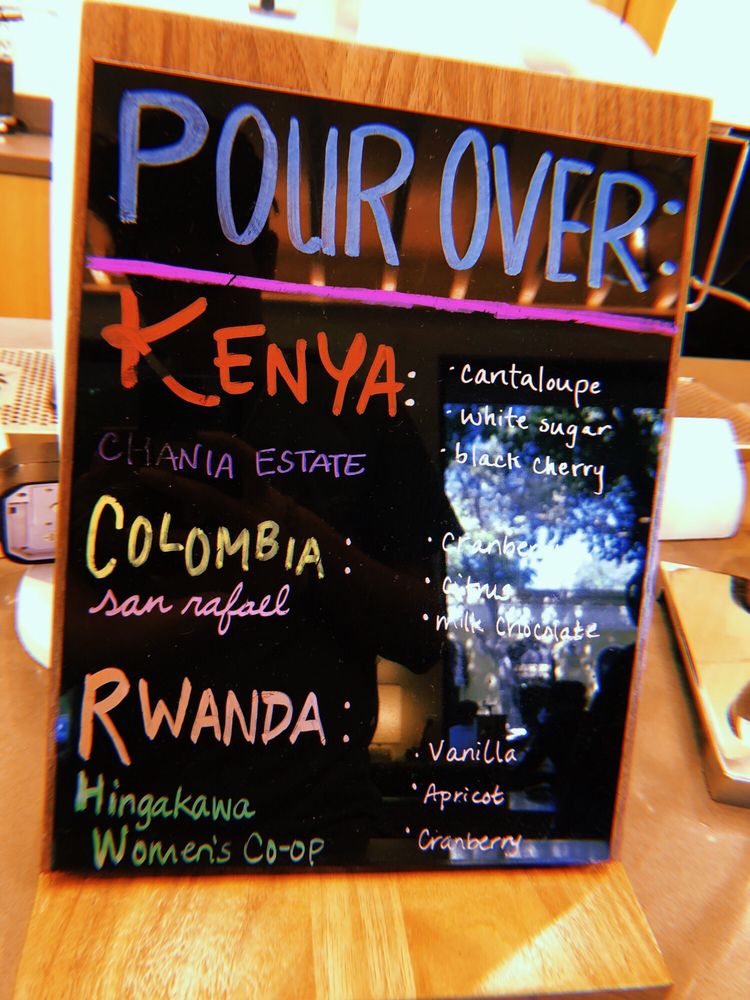 POUR OVER:
KENYA:
CHANIA ESTATE
· cantaloupe
· white sugar
· black cherry
COLOMBIA:
san rafael
· Cranberry
· citrus
· milk chocolate
RWANDA:
Hingakawa
Women's Co-op
· Vanilla
· Apricot
· Cranberry